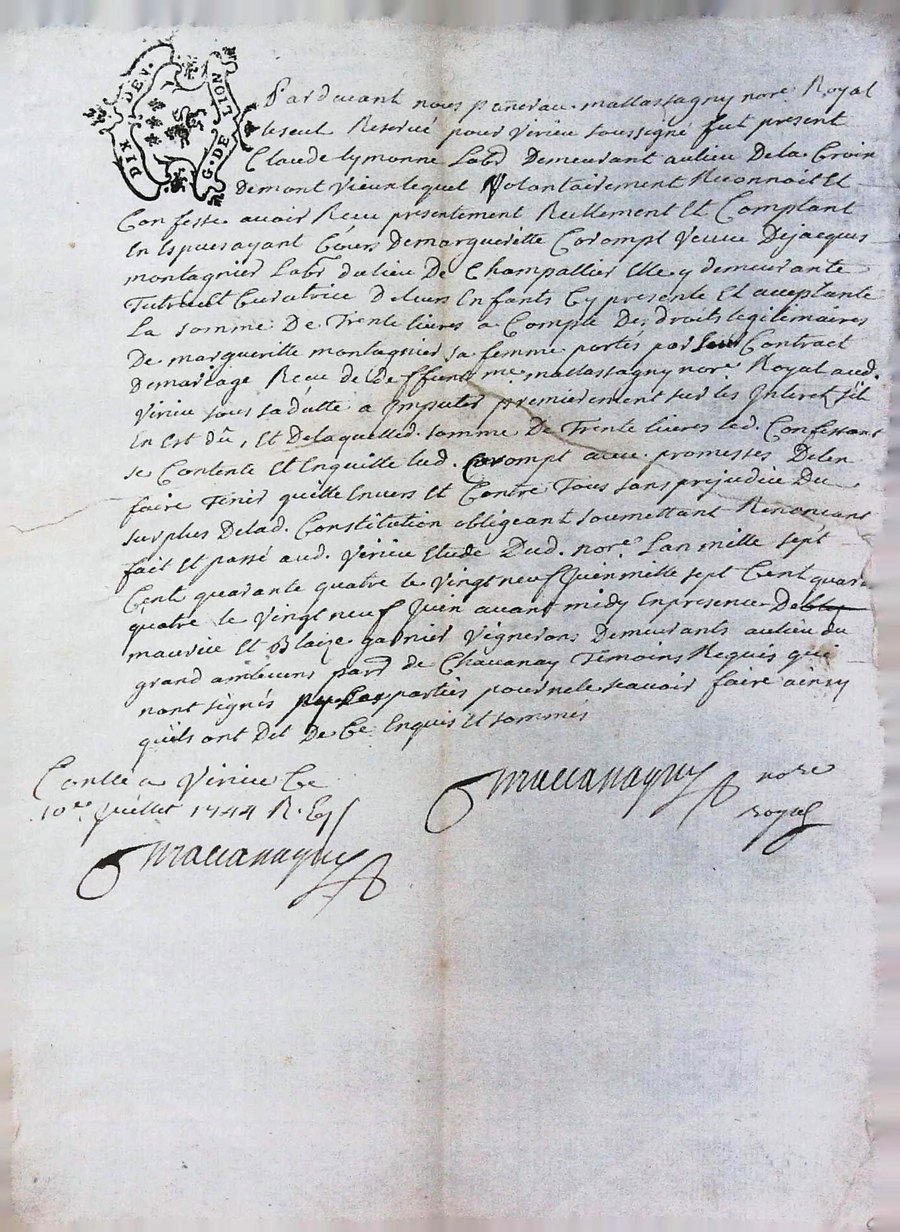 DIX DEV. G. DE LION
Pardevant nous mallassagny nore. Royal
le seul Reservé pour Virieu soussigné fut present
Claude Lymonne Labr. Demeurant au lieu De la Croix
De mont Vieux lequel Volontairement Reconnoit Et
Confesse avoir Receu presentement Reellement Et Comptant
En Espues ayant Cours De margueritte Corompt Veuve De jacques
montagnier Labr. du lieu De Champallier Elle y demeurante
Tutrice Et Curatrice De leurs Enfants Cy presente Et aceptante
La somme De Trente livres a Compte Des droits legitimaires
De margueritte montagnier sa femme portés par Leur Contract
De mariage Receu De me. mallassagny nore. Royal aud.
Virieu sous sa datte a Imputer premierement sur les Interets sil
En Est dû, Et De laquelled. somme De Trente livres led. Confessant
se Contente Et En quitte lad. Corompt avec promesses De len
faire Tenir quitte Envers Et Contre Tous sans prejudice Du
surplus De lad. Constitution obligeant soumettant Renoncant
fait Et passé aud. Virieu Etude Dud. nore. Lan mille sept
Cent quarante quatre le Vingt neuf Juin mille sept Cent quara
quatre le Vingt neuf Juin avant midy En presence De
maurice Et Blaize garnier Vignerons Demeurants au lieu du
grand ambuens parr. de Chavanay Temoins Requis qui
nont signés ny Les parties pour ne le scavoir faire ainsy
quils ont Dit De Ce Enquis Et sommés
Conllé a Virieu Ce
10me. Juillet 1744 R.
mallassagny nore
Royal
mallassagny